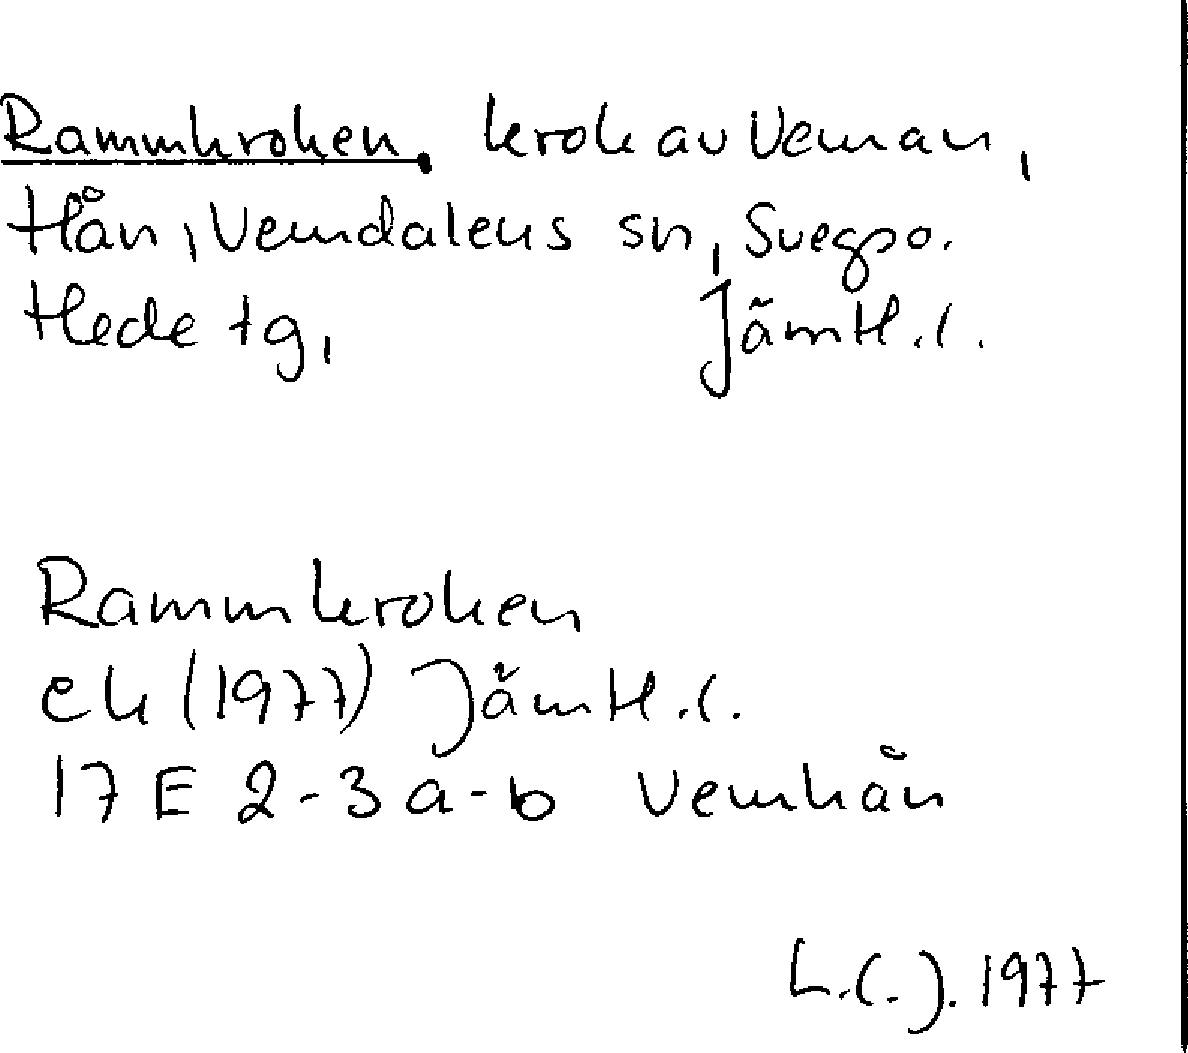 Rammkroken, krok av Veman,
Hån, Vemdalens sn, Svegpo.
Hede tg, Jämtl.l.
Rammkroken
ek (1977) Jämtl.l.
17 E 2-3 a-b Vemhån
L.C.J. 1977